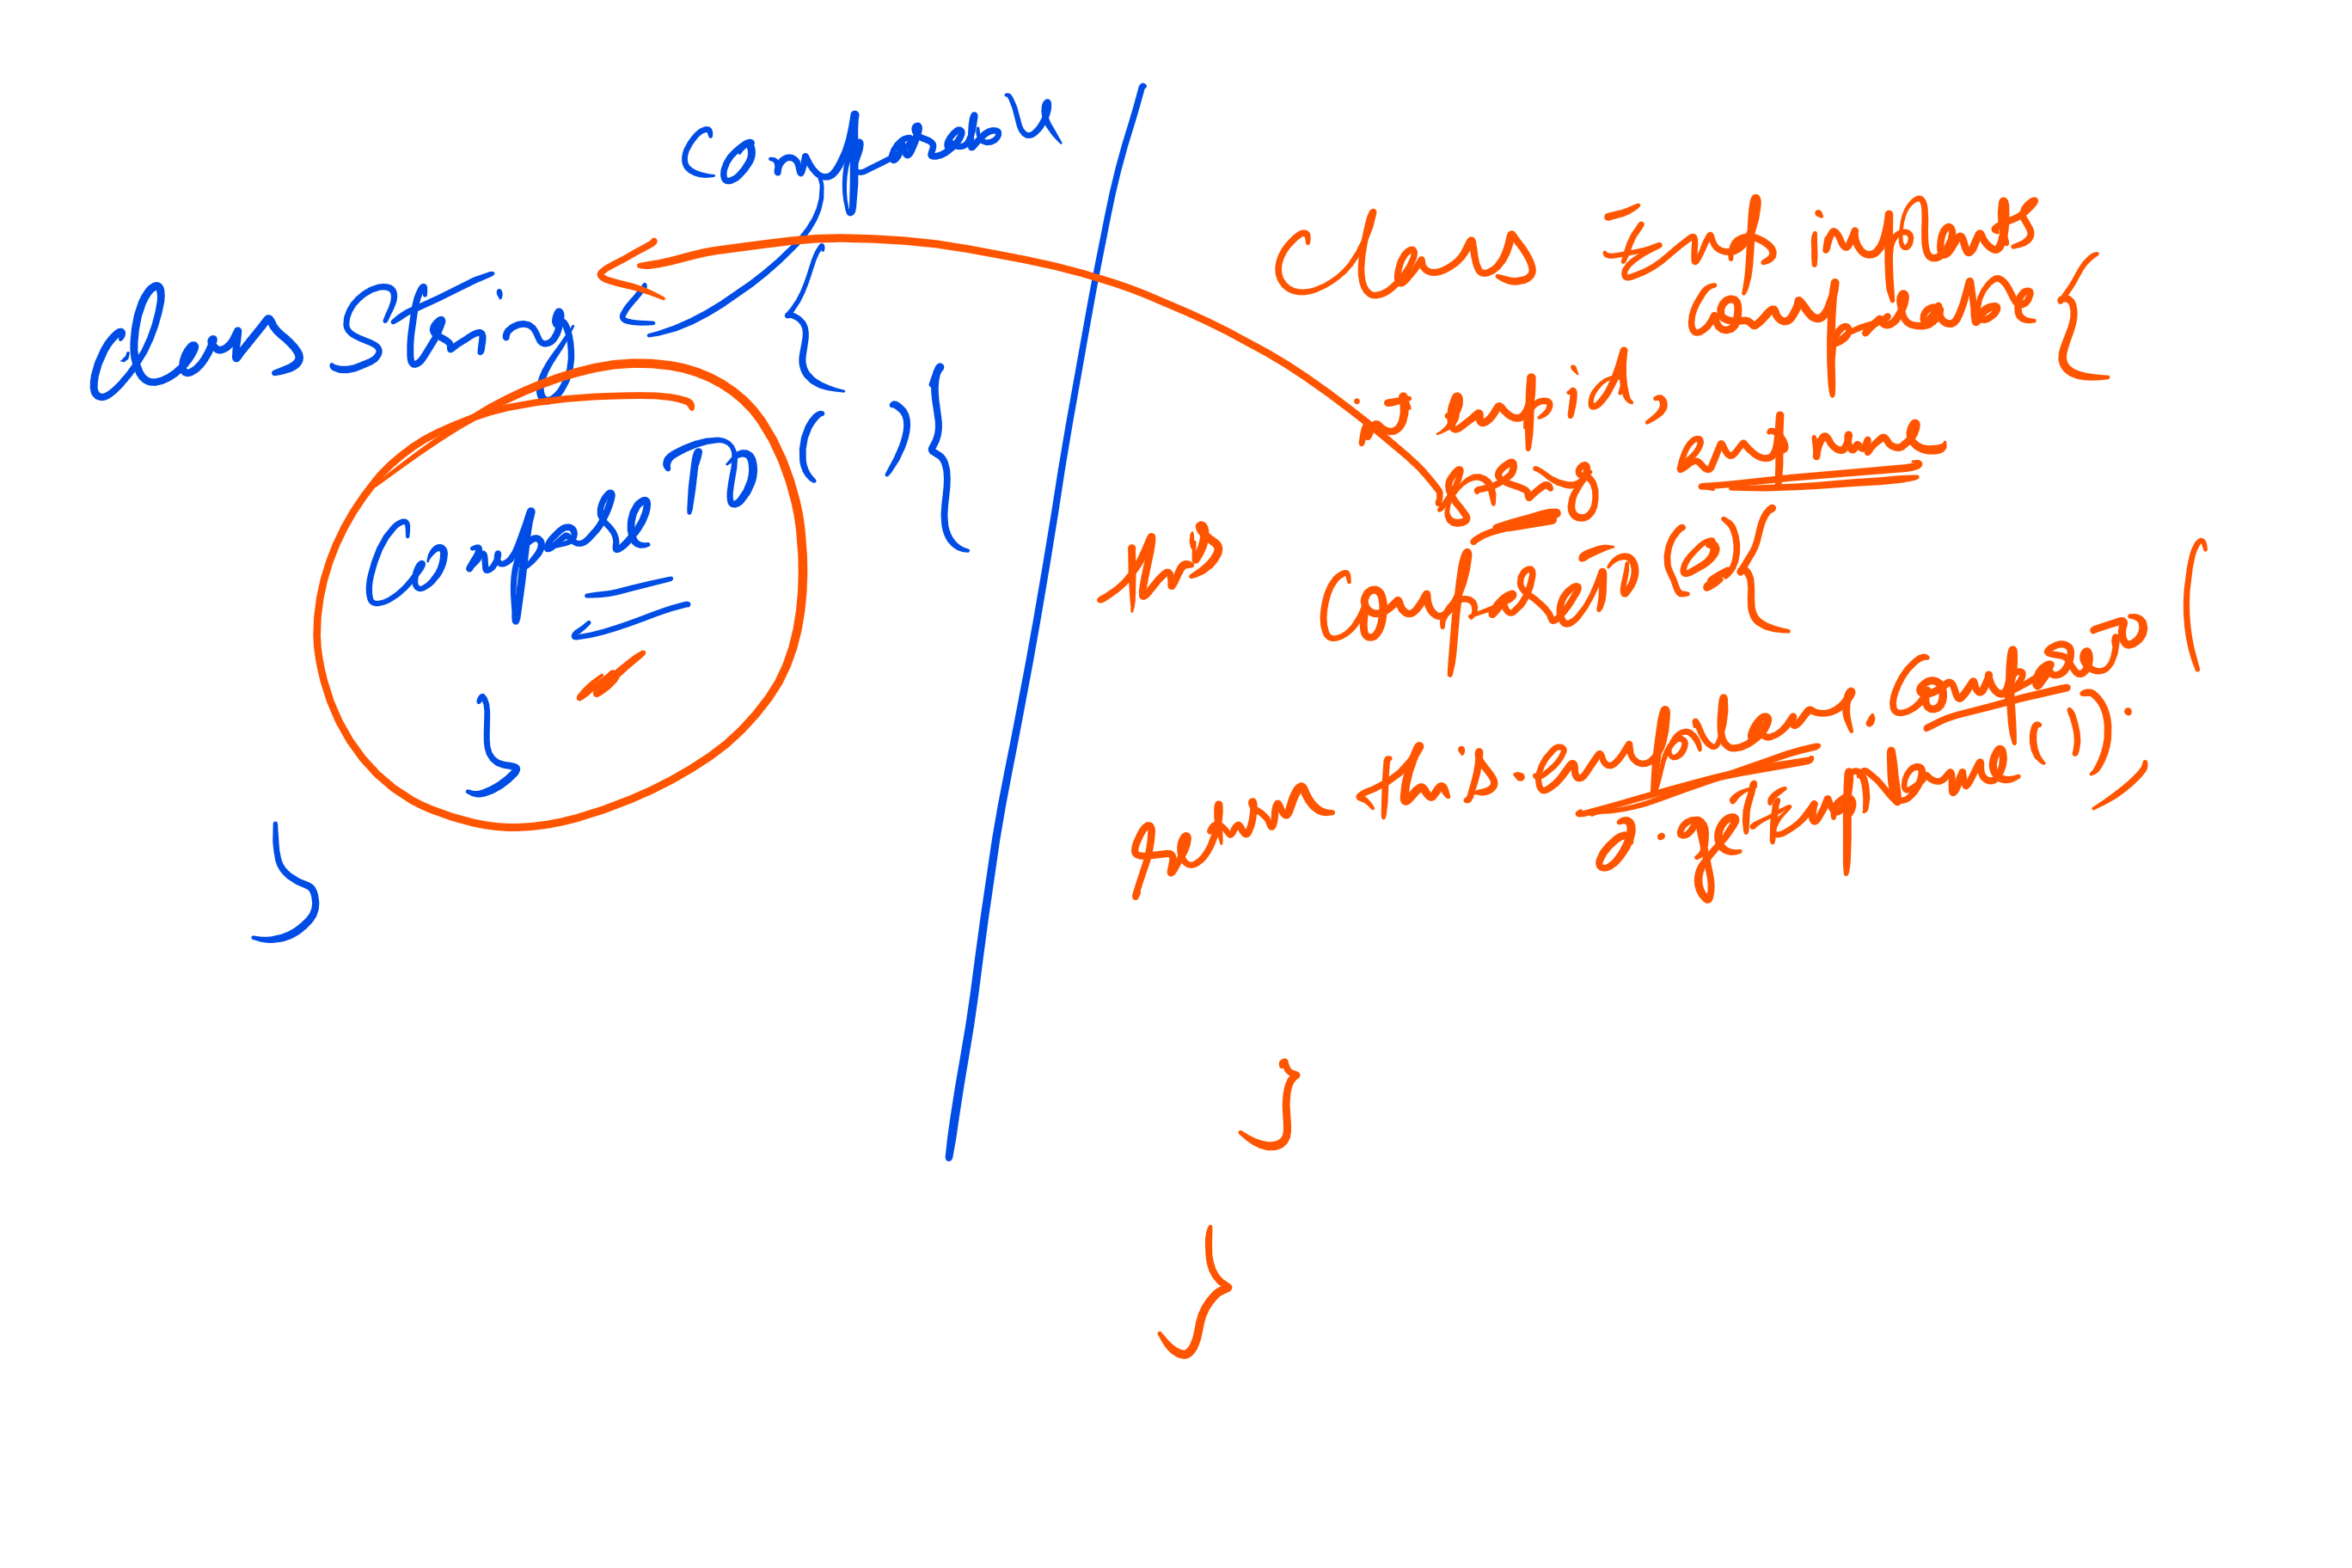 Comparable
class String {
CompareTo ( ) {
}
}
class Emp implents
comparable {
int empid,
empname
this
compareTo (Obj) {
return this.empName.compareTo (
g.getEmpName());
}
}